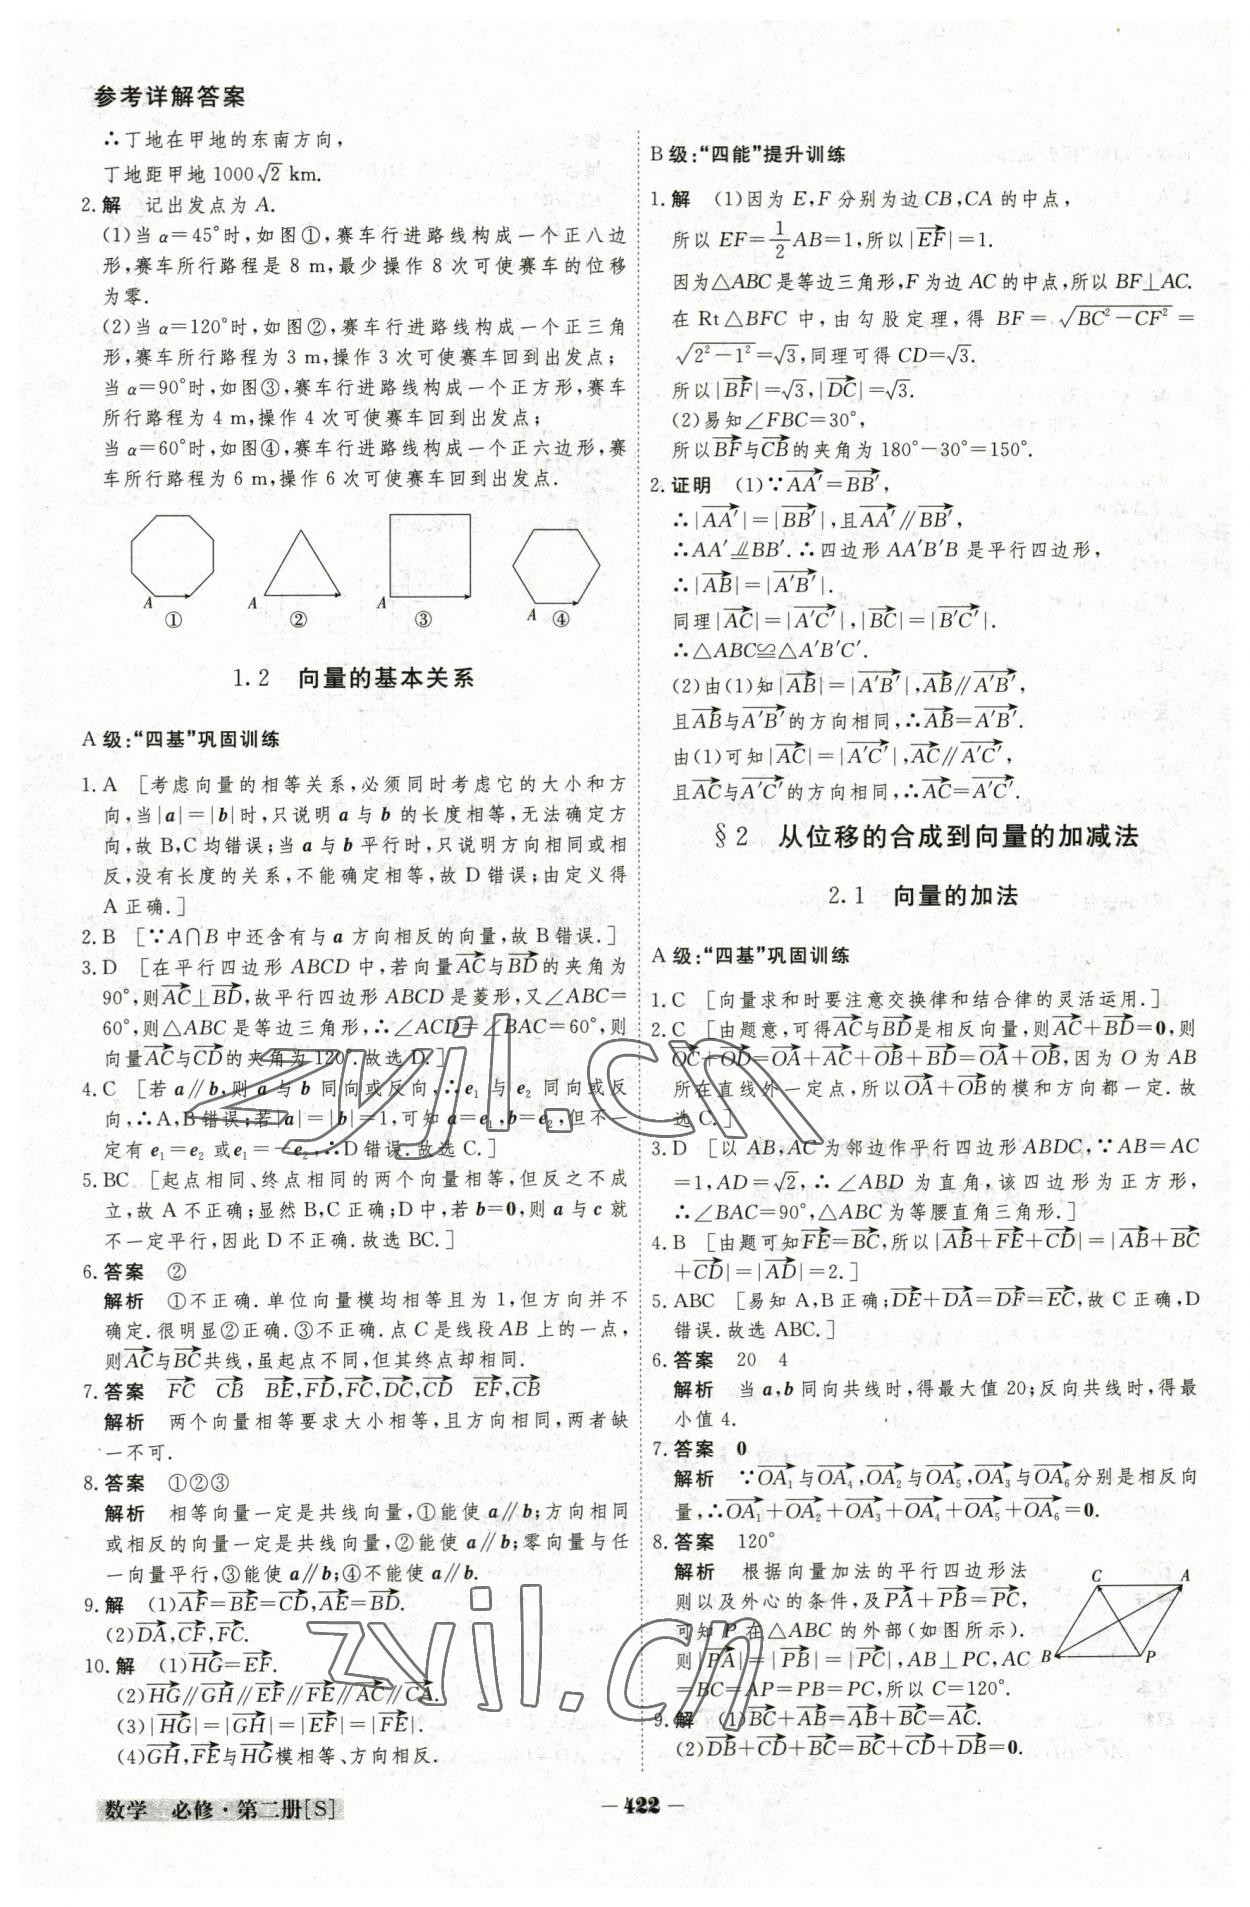 参考详解答案
∴丁地在甲地的东南方向,
丁地距甲地1000√2 km.
2.解 记出发点为A.
(1)当α=45°时,如图①,赛车行进路线构成一个正八边
形,赛车所行路程是8 m,最少操作8次可使赛车的位移
为零.
(2)当α=120°时,如图②,赛车行进路线构成一个正三角
形,赛车所行路程为3 m,操作3次可使赛车回到出发点;
当α=90°时,如图③,赛车行进路线构成一个正方形,赛车
所行路程为4 m,操作4次可使赛车回到出发点;
当α=60°时,如图④,赛车行进路线构成一个正六边形,赛
车所行路程为6 m,操作6次可使赛车回到出发点.
A ① A ② A ③ A ④
1.2 向量的基本关系
A级:“四基”巩固训练
1.A [考虑向量的相等关系,必须同时考虑它的大小和方
向,当|a|=|b|时,只说明a与b的长度相等,无法确定方
向,故B,C均错误;当a与b平行时,只说明方向相同或相
反,没有长度的关系,不能确定相等,故D错误;由定义得
A正确.]
2.B [∵A∩B中还含有与a方向相反的向量,故B错误.]
3.D [在平行四边形ABCD中,若向量AC→与BD→的夹角为
90°,则AC→⊥BD→,故平行四边形ABCD是菱形,又∠ABC=
60°,则△ABC是等边三角形,∴∠ACD=∠BAC=60°,则
向量AC→与CD→的夹角为120°.故选D.]
4.C [若a∥b,则a与b同向或反向,∴e₁与e₂同向或反
向,∴A,B错误;若|a|=|b|=1,可知a=e₁,b=e₂,但不一
定有e₁=e₂或e₁=-e₂,∴D错误.故选C.]
5.BC [起点相同、终点相同的两个向量相等,但反之不成
立,故A不正确;显然B,C正确;D中,若b=0,则a与c就
不一定平行,因此D不正确.故选BC.]
6.答案 ②
解析 ①不正确.单位向量模均相等且为1,但方向并不
确定.很明显②正确.③不正确.点C是线段AB上的一点,
则AC→与BC→共线,虽起点不同,但其终点却相同.
7.答案 FC→ CB→ BE→,FD→,FC→,DC→,CD→ EF→,CB→
解析 两个向量相等要求大小相等,且方向相同,两者缺
一不可.
8.答案 ①②③
解析 相等向量一定是共线向量,①能使a∥b;方向相同
或相反的向量一定是共线向量,②能使a∥b;零向量与任
一向量平行,③能使a∥b;④不能使a∥b.
9.解 (1)AF→=BE→=CD→,AE→=BD→.
(2)DA→,CF→,FC→.
10.解 (1)HG→=EF→.
(2)HG→∥GH→∥EF→∥FE→∥AC→∥CA→.
(3)|HG→|=|GH→|=|EF→|=|FE→|.
(4)GH→,FE→与HG→模相等、方向相反.
B级:“四能”提升训练
1.解 (1)因为E,F分别为边CB,CA的中点,
所以EF=1/2AB=1,所以|EF→|=1.
因为△ABC是等边三角形,F为边AC的中点,所以BF⊥AC.
在Rt△BFC中,由勾股定理,得BF=√(BC²-CF²)=
√(2²-1²)=√3,同理可得CD=√3.
所以|BF→|=√3,|DC→|=√3.
(2)易知∠FBC=30°,
所以BF→与CB→的夹角为180°-30°=150°.
2.证明 (1)∵AA′→=BB′→,
∴|AA′→|=|BB′→|,且AA′→∥BB′→,
∴AA′⫽BB′.∴四边形AA′B′B是平行四边形,
∴|AB→|=|A′B′→|.
同理|AC→|=|A′C′→|,|BC→|=|B′C′→|.
∴△ABC≌△A′B′C′.
(2)由(1)知|AB→|=|A′B′→|,AB→∥A′B′→,
且AB→与A′B′→的方向相同,∴AB→=A′B′→.
由(1)可知|AC→|=|A′C′→|,AC→∥A′C′→,
且AC→与A′C′→的方向相同,∴AC→=A′C′→.
§2 从位移的合成到向量的加减法
2.1 向量的加法
A级:“四基”巩固训练
1.C [向量求和时要注意交换律和结合律的灵活运用.]
2.C [由题意,可得AC→与BD→是相反向量,则AC→+BD→=0,则
OC→+OD→=OA→+AC→+OB→+BD→=OA→+OB→,因为O为AB
所在直线外一定点,所以OA→+OB→的模和方向都一定.故
选C.]
3.D [以AB,AC为邻边作平行四边形ABDC,∵AB=AC
=1,AD=√2,∴∠ABD为直角,该四边形为正方形,
∴∠BAC=90°,△ABC为等腰直角三角形.]
4.B [由题可知FE→=BC→,所以|AB→+FE→+CD→|=|AB→+BC→
+CD→|=|AD→|=2.]
5.ABC [易知A,B正确;DE→+DA→=DF→=EC→,故C正确,D
错误.故选ABC.]
6.答案 20 4
解析 当a,b同向共线时,得最大值20;反向共线时,得最
小值4.
7.答案 0
解析 ∵OA₁→与OA₄→,OA₂→与OA₅→,OA₃→与OA₆→分别是相反向
量,∴OA₁→+OA₂→+OA₃→+OA₄→+OA₅→+OA₆→=0.
8.答案 120°
解析 根据向量加法的平行四边形法
则以及外心的条件,及PA→+PB→=PC→,
可知P在△ABC的外部(如图所示).
则|PA→|=|PB→|=|PC→|,AB⊥PC,AC
=BC=AP=PB=PC,所以C=120°.
C A B P
9.解 (1)BC→+AB→=AB→+BC→=AC→.
(2)DB→+CD→+BC→=BC→+CD→+DB→=0.
数学 必修·第二册[S]
— 422 —
zyjl.cn
zyjl.cn